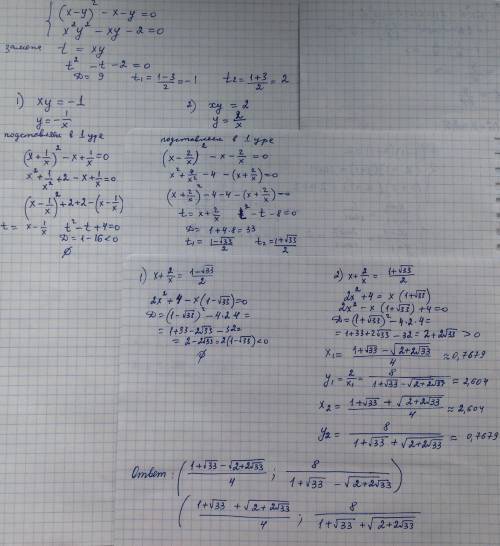 (x-y)² - x - y = 0
x²y² - xy - 2 = 0
замена t = xy
t² - t - 2 = 0
D = 9 t₁ = (1-3)/2 = -1 t₂ = (1+3)/2 = 2
1) xy = -1
y = -1/x
подставляем в 1 ур-е
(x + 1/x)² - x + 1/x = 0
x² + 1/x² + 2 - x + 1/x = 0
(x - 1/x)² + 2 + 2 - (x - 1/x)
t = x - 1/x t² - t + 4 = 0
D = 1 - 16 < 0
∅
2) xy = 2
y = 2/x
подставляем в 1 ур-е
(x - 2/x)² - x - 2/x = 0
x² + 4/x² - 4 - (x + 2/x) = 0
(x + 2/x)² - 4 - 4 - (x + 2/x) = 0
t = x + 2/x t² - t - 8 = 0
D = 1 + 4·8 = 33
t₁ = (1-√33)/2 t₂ = (1+√33)/2
1) x + 2/x = (1-√33)/2
2x² + 4 - x(1-√33) = 0
D = (1-√33)² - 4·2·4 =
= 1 + 33 - 2√33 - 32 =
= 2 - 2√33 = 2(1-√33) < 0
∅
2) x + 2/x = (1+√33)/2
2x² + 4 = x(1+√33)
2x² - x(1+√33) + 4 = 0
D = (1+√33)² - 4·2·4 =
= 1 + 33 + 2√33 - 32 = 2 + 2√33 > 0
x₁ = (1+√33 - √(2+2√33))/4 ≈ 0,7679
y₁ = 2/x₁ = 8/(1+√33 - √(2+2√33)) = 2,604
x₂ = (1+√33 + √(2+2√33))/4 ≈ 2,604
y₂ = 8/(1+√33 + √(2+2√33)) ≈ 0,7679
Ответ: ((1+√33 - √(2+2√33))/4 ; 8/(1+√33 - √(2+2√33)))
((1+√33 + √(2+2√33))/4 ; 8/(1+√33 + √(2+2√33))